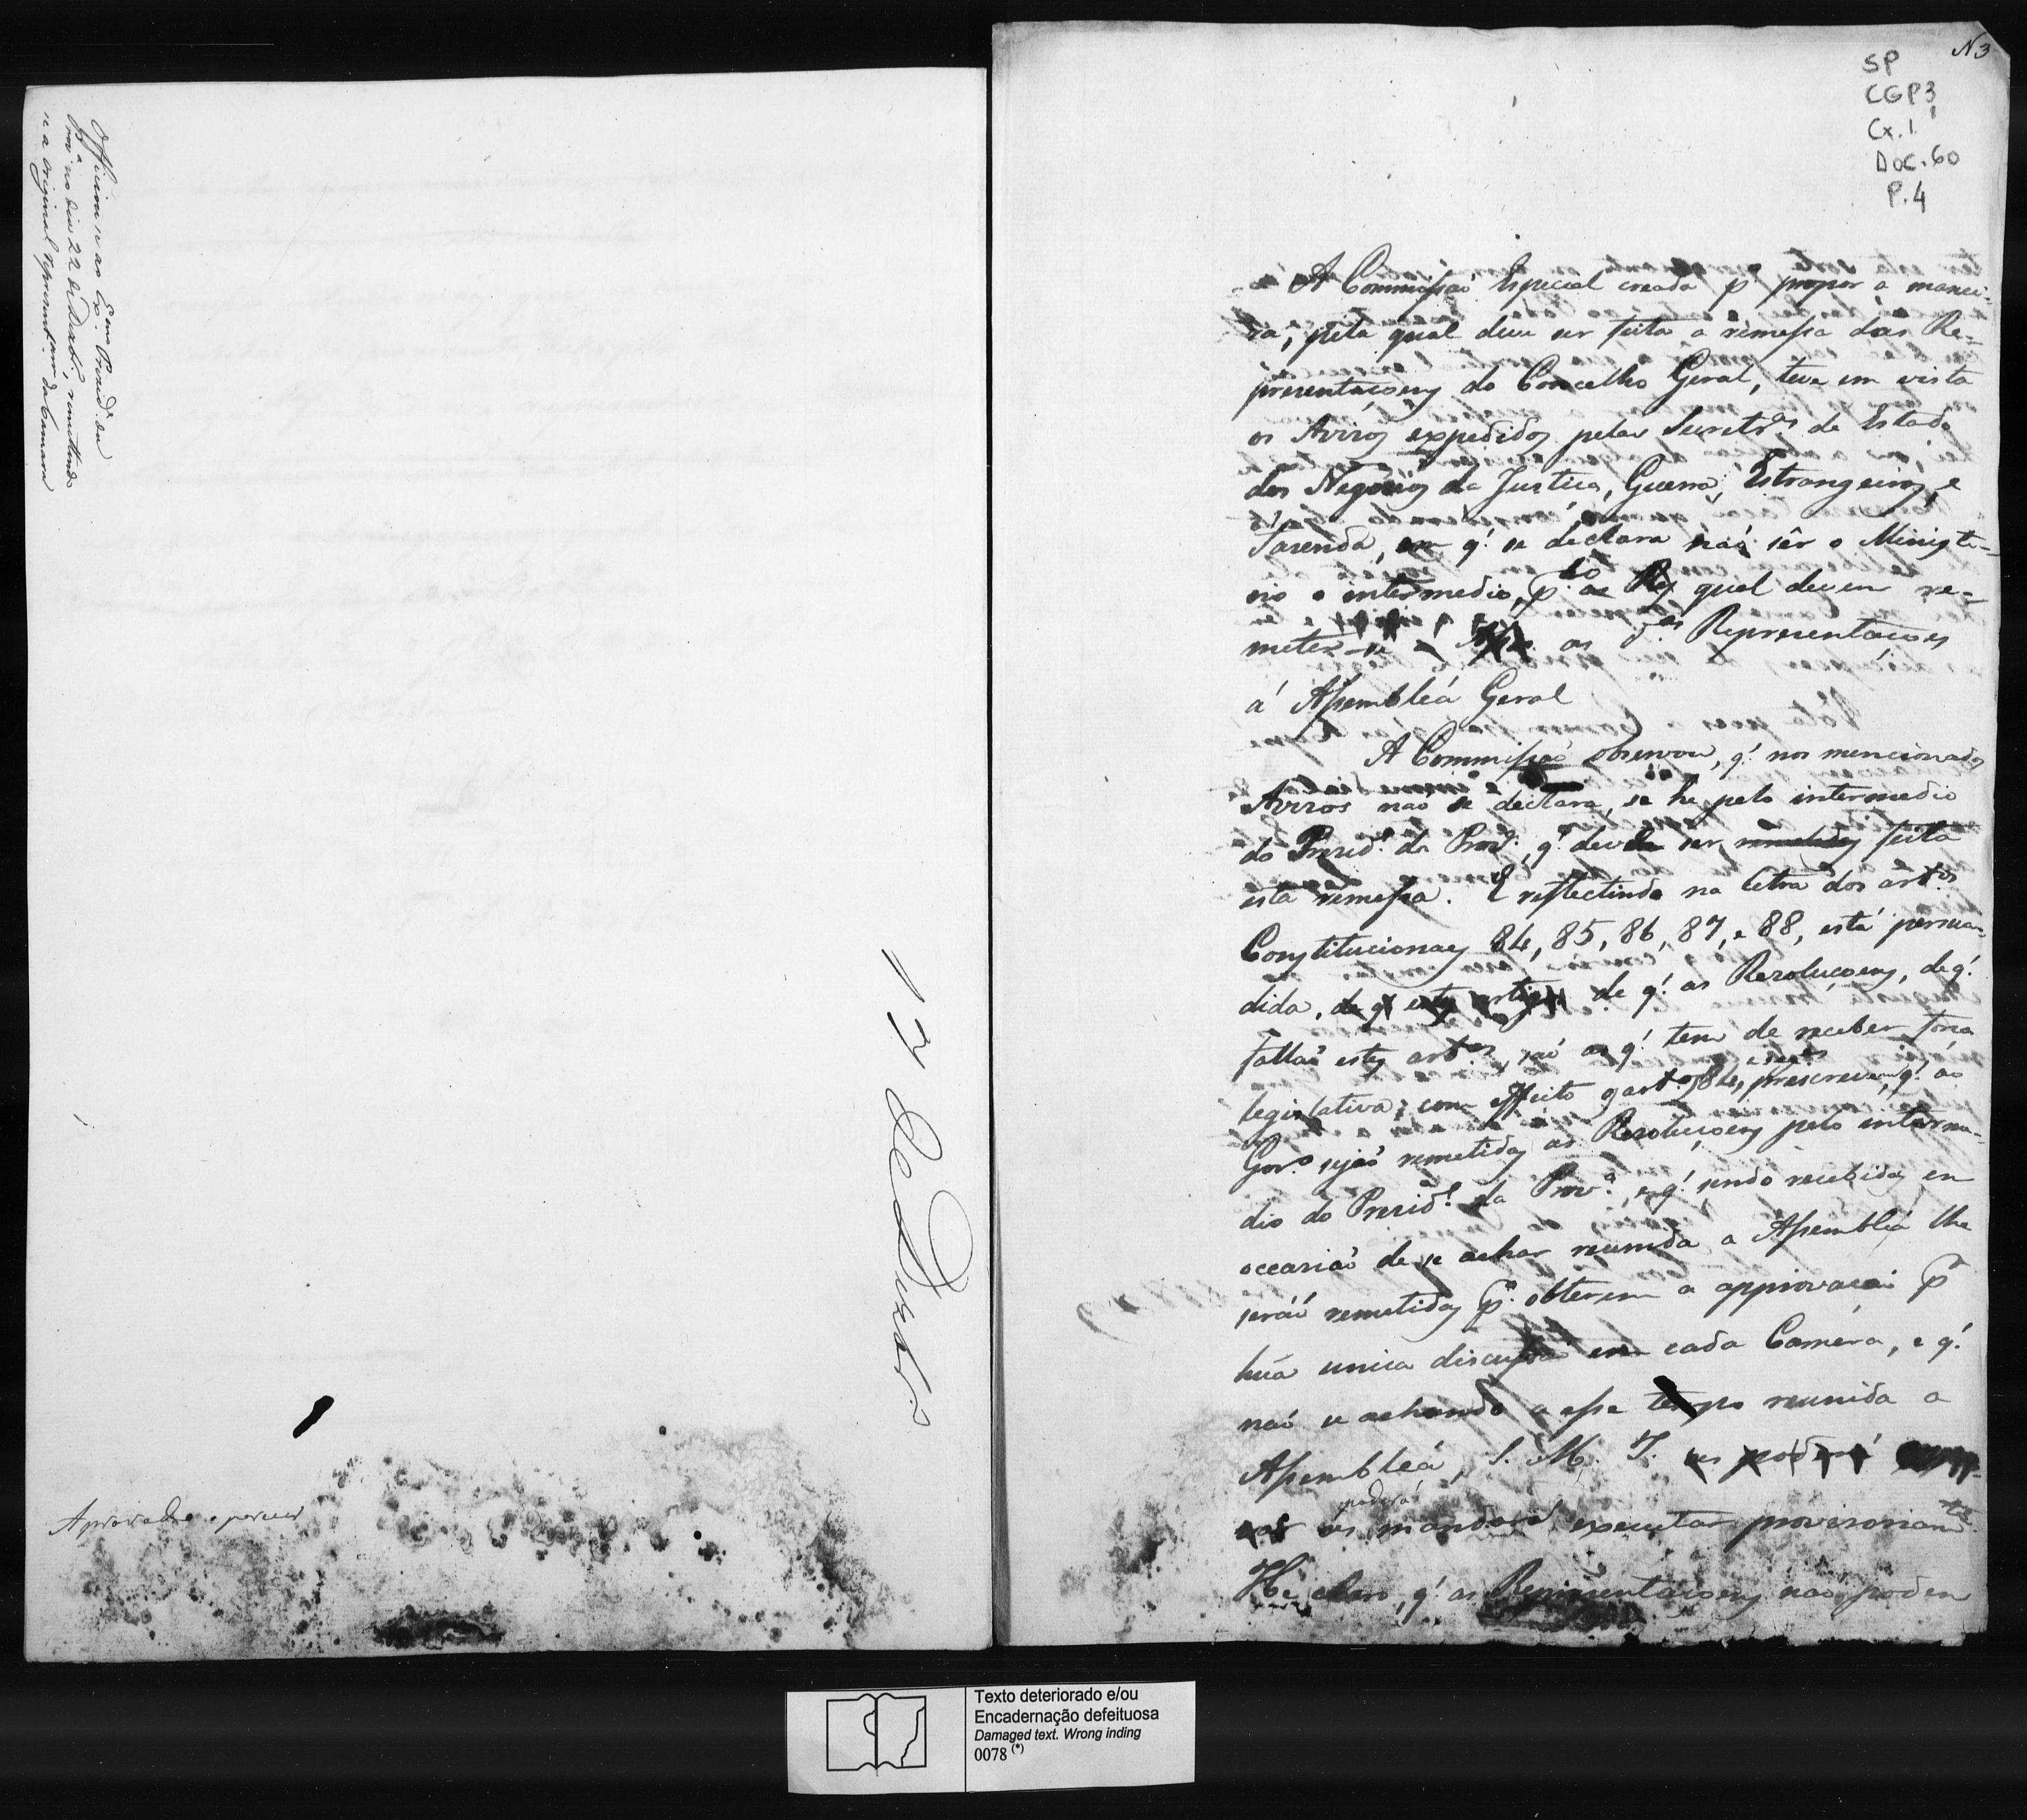 Officiou-se ao Ex.mo Presid.e da
Prov.a no dia 22 de Dezbr.o, remettendo
se a original representação da Camara
17 de Dezbr.o
Aprovado o parecer
N 3
SP
CGP3
Cx. 1
Doc. 60
P. 4
A Commissaõ Especial creada p.a propor a manei-
ra, pela qual deve ser feita a remessa das Re-
presentaçoens do Concelho Geral, teve em vista
os Avizos expedidos pelas Secretr.as de Estado
dos Negocios da Justiça, Guerra, Estrangeiros, e
Fazenda, em q.' se declara naõ sêr o Ministe-
rio o intermedio, p.lo qual devem re-
meter-se as d.as Representaçoes
á Assembléa Geral
A Commissaõ observou, q.' nos mencionados
Avizos naõ se declara, se he pelo intermedio
do Presid.e da Prov.a, q.' deve ser remetidas feita
esta remessa. E reflectindo na letra dos art.os
Constitucionaes 84, 85, 86, 87, e 88, está persua-
dida, de q' estes artigos de q.' as Resoluçoens, de q.'
fallaõ estes art.os, saõ as q.' tem de receber força
legislativa; com effeito o art.o 84, e seg.es prescrevem, q.' ao
Gov.o sejaõ remetidas as Resoluçoens pelo interme-
dio do Presid.e da Prov.a, e q.' sendo recebidas em
occasiaõ de se achar reunida a Assembléa lhe
seráõ remetidas p.a obterem a approvaçaõ p.r
hũa unica discussaõ em cada Camera, e q.'
naõ se achando a esse tempo reunida a
Assembléa, S. M. I. as poderá
poderá
as mandará executar provisoriam.te
He claro, q.' as Representaçoens naõ podem
Texto deteriorado e/ou
Encadernação defeituosa
Damaged text. Wrong inding
0078 (*)